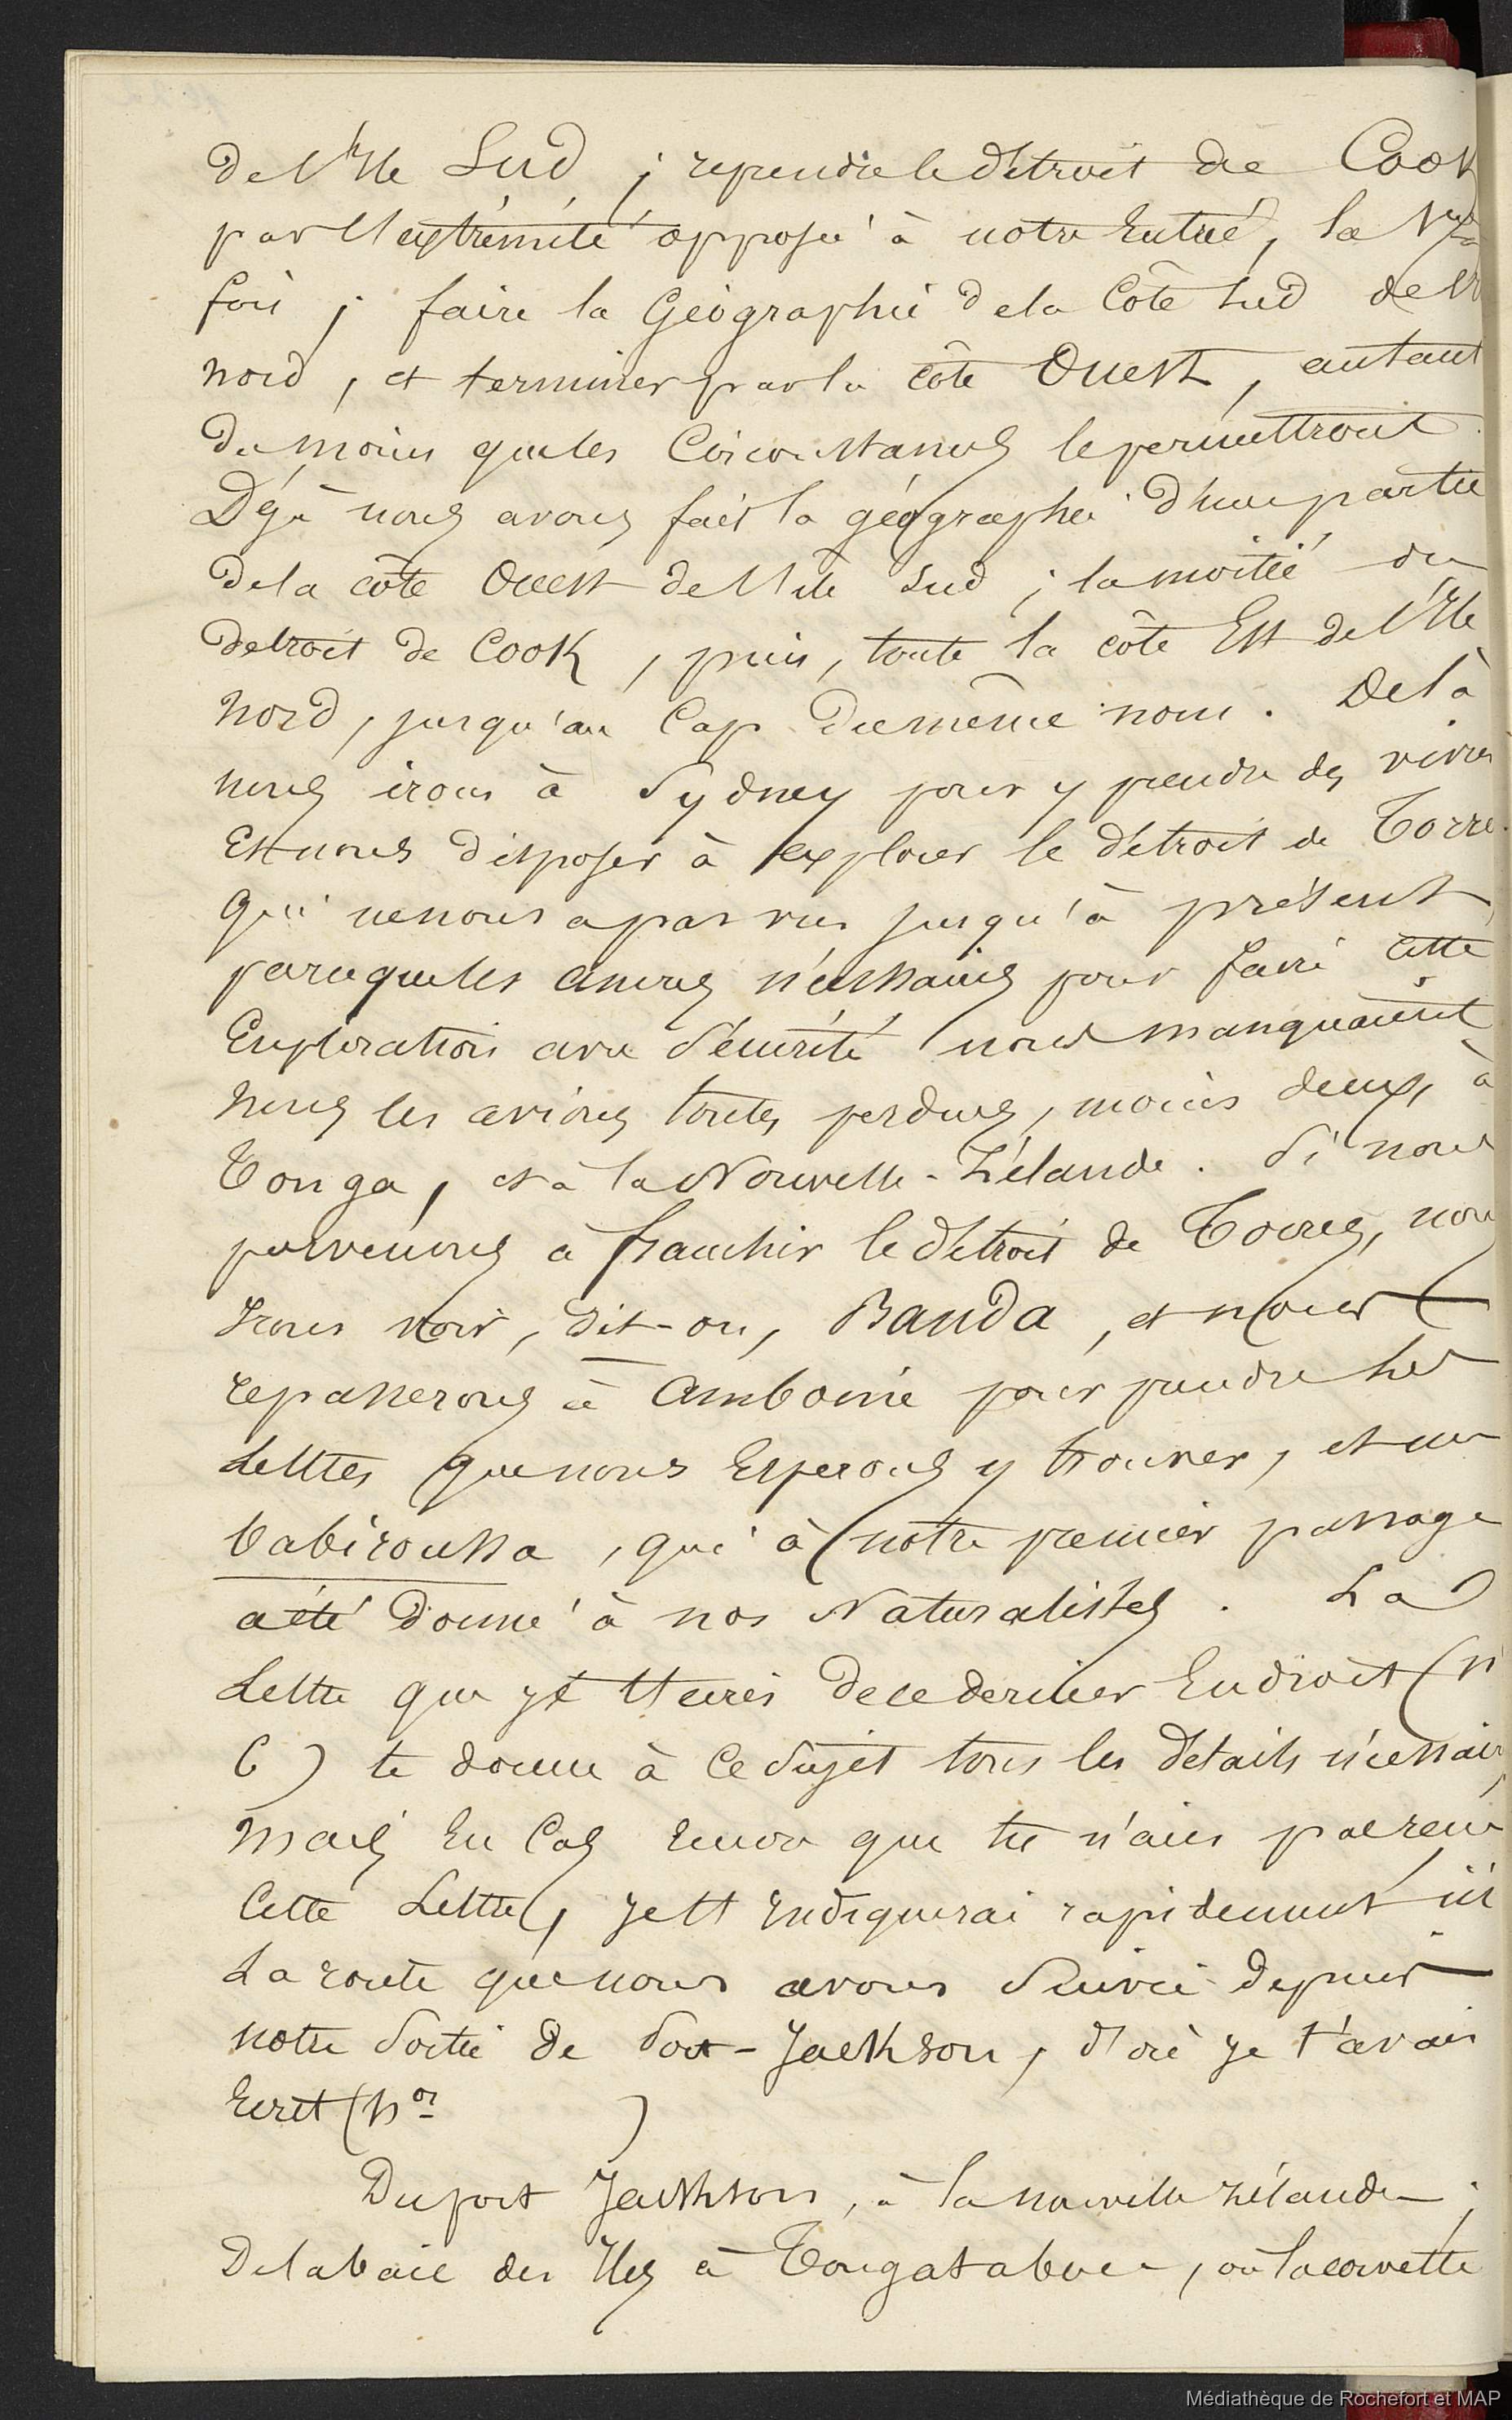 de l'Ile Sud ; reprendre le détroit de Cook
par l'extrémité opposée à notre Entrée, la 1re
fois ; faire la Géographie de la Côte Sud de
nord, et terminer par la côte Ouest, autant
du moins que les Circonstances le permettront.
Déjà nous avons fait la géographie d'une partie
de la côte Ouest de l'ile Sud ; la moitié du
detroit de Cook, puis, toute la côte Est de l'Ile
nord, jusqu'au Cap du même nom. De là
nous irons à Sydney pour y prendre des vivres
Et nous disposer à explorer le détroit de
qui ne nous a pas vus jusqu'à présent,
parce que les ancres nécessaires pour faire cette
Exploration avec sécurité nous manquaient
nous les avions toutes perdues, moins deux, à
Tonga, et à la Nouvelle-Zélande. Si nous
parvenons à franchir le détroit de Torres, nous
Irons voir, dit-on, Banda, et nous
repasserons à Amboine pour prendre les
Lettres que nous Esperons y trouver, et un
babiroussa, qui à notre premier passage
a été donné à nos Naturalistes. La
Lettre que je t'écris de ce dernier Endroit (n°
6) te donne à ce sujet tous les détails
mais En Cas Encor que tu n'aies pas reçu
Cette Lettre, je t'Indiquerai rapidement ici
La route que nous avons Suivie depuis
notre Sortie de Port-Jackson, d'où je t'avais
Ecrit (nos )
Du port Jackson, à la nouvelle Zélande ;
De la baie des Iles à Tongatabou, où la corvette
Médiathèque de Rochefort et MAP